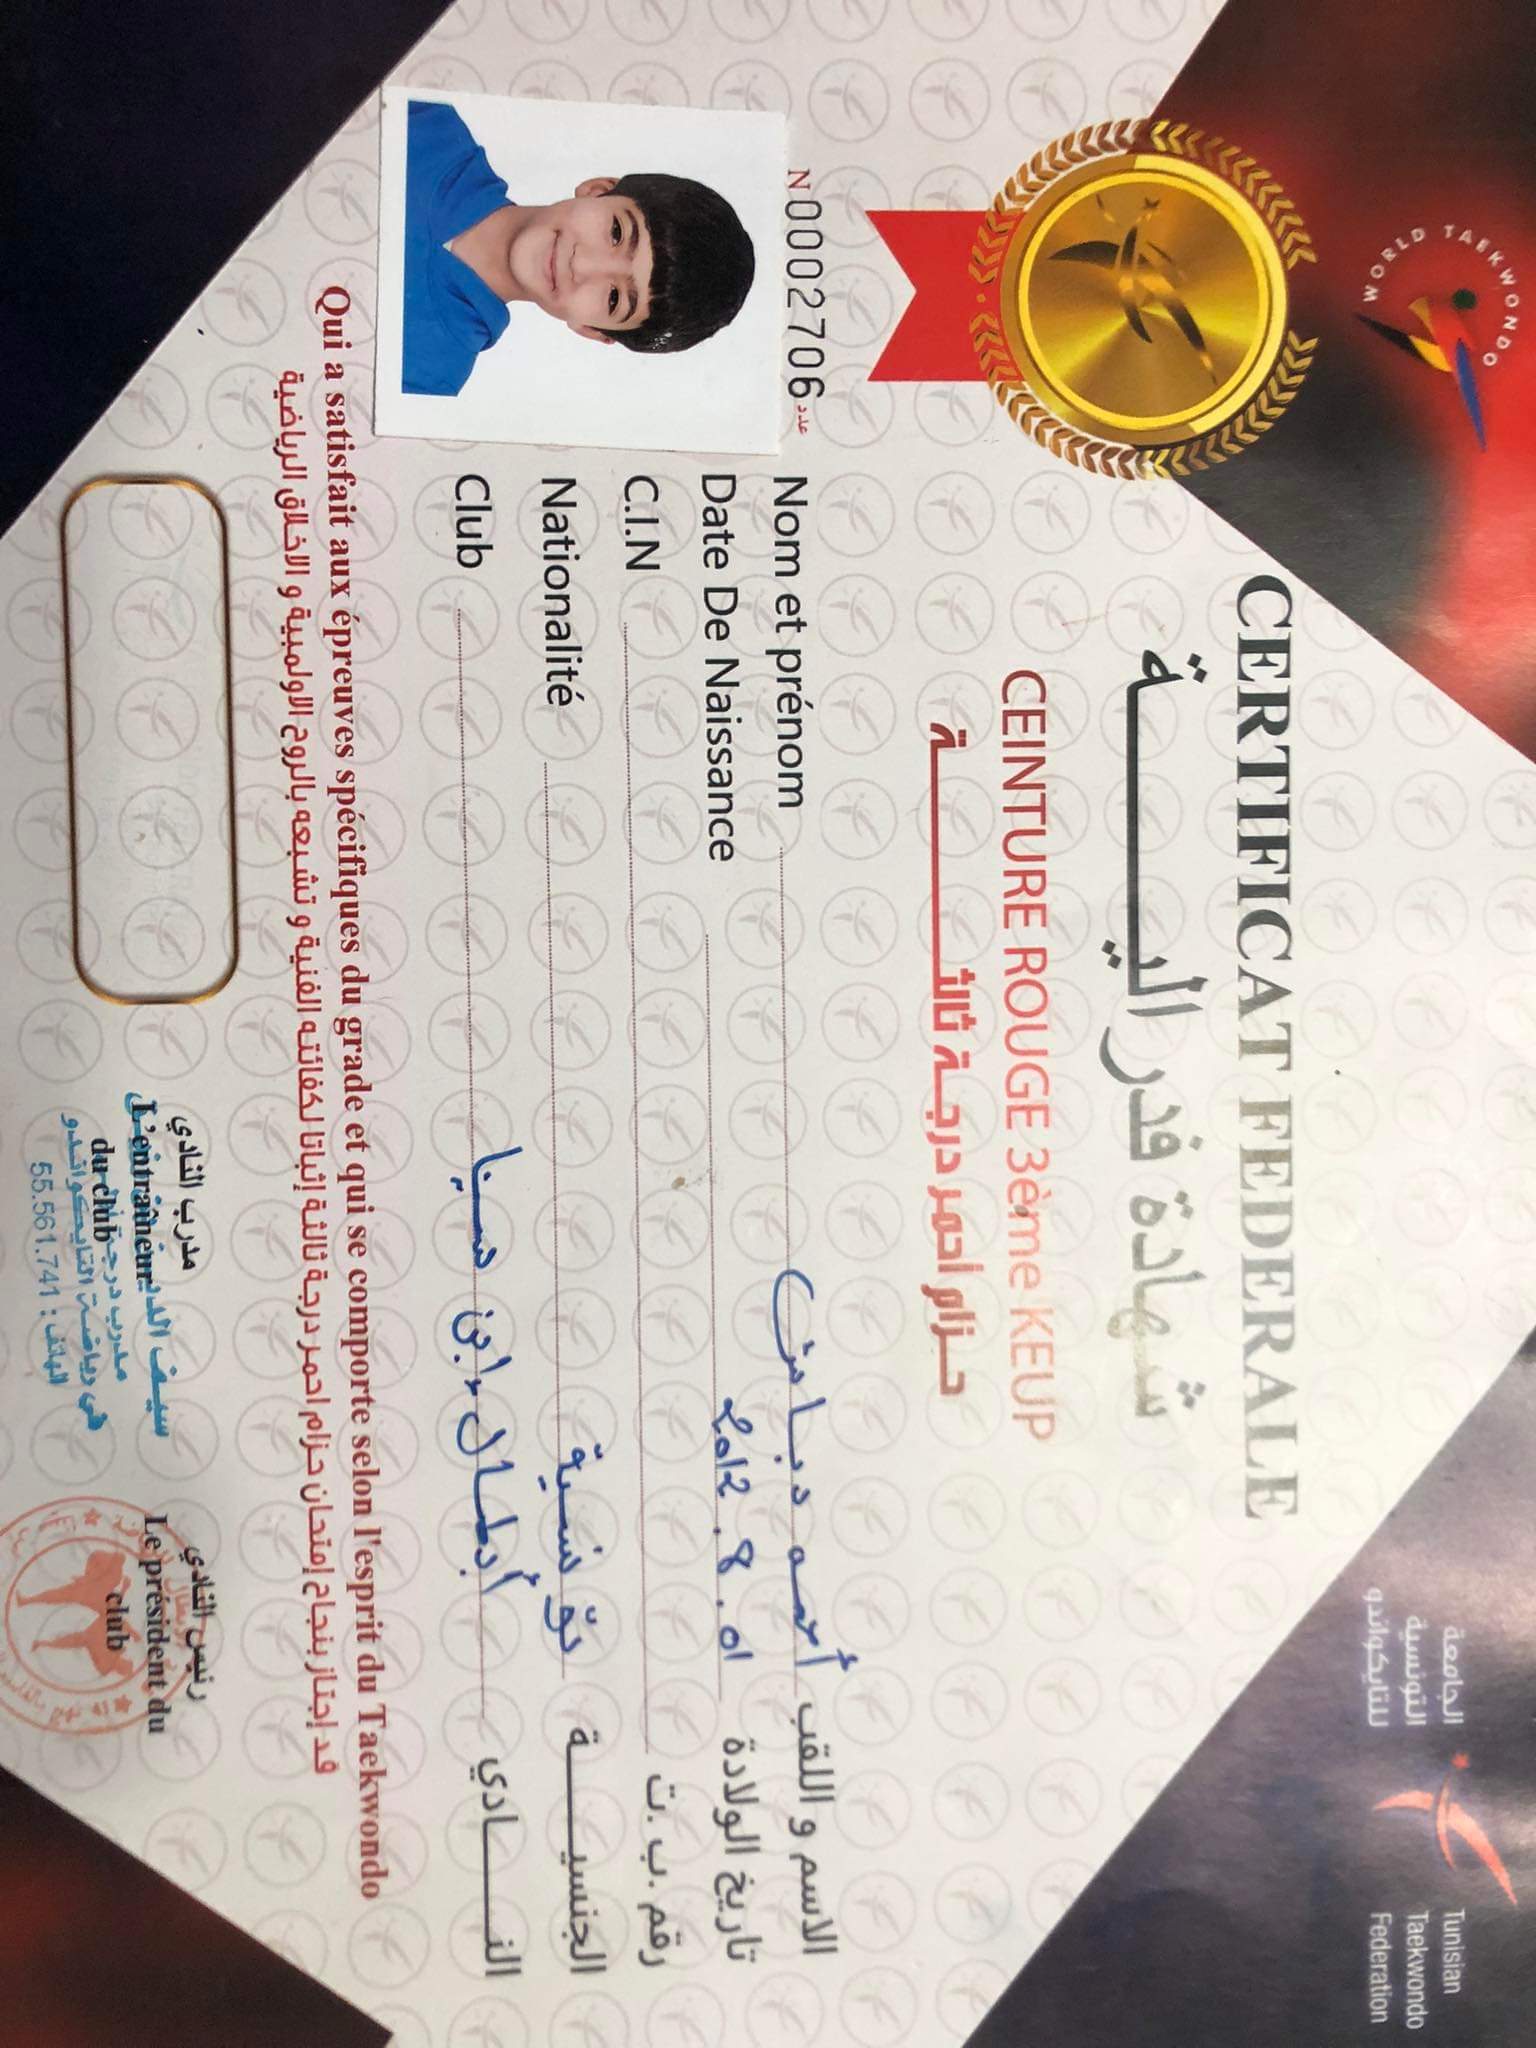 WORLD TAEKWONDO
الجامعة
التونسية
للتايكواندو
Tunisian
Taekwondo
Federation
CERTIFICAT FEDERALE
شهادة فدرالية
CEINTURE ROUGE 3ème KEUP
حزام احمر درجة ثالثة
N 0002706 عدد
Nom et prénom أحمد دباش الاسم و اللقب
Date De Naissance 2012.8.01 تاريخ الولادة
C.I.N رقم ب.ت.
Nationalité تونسية الجنسية
Club أبطال ابن سينا النادي
Qui a satisfait aux épreuves spécifiques du grade et qui se comporte selon l'esprit du Taekwondo
قد إجتاز بنجاح إمتحان حزام احمر درجة ثالثة إثباتا لكفائته الفنية و تشبعه بالروح الاولمبية و الاخلاق الرياضية
مدرب النادي
L'entraîneur
du club
سيف الدين
مدرب درجة
في رياضة التايكواندو
الهاتف : 55.561.741
رئيس النادي
Le président du
club